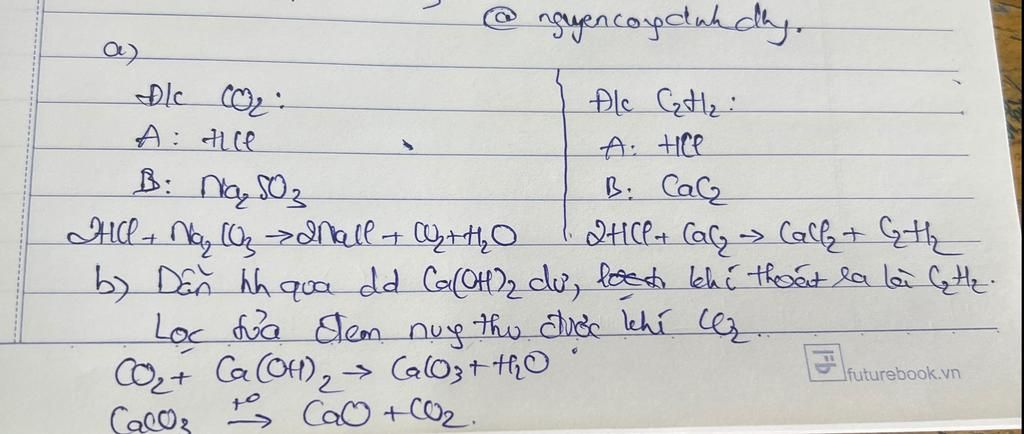 @ nguyencongdinh dhy.
a)
Đ/c CO2:
A: HCl
B: Na2SO3
2HCl + Na2CO3 → 2NaCl + CO2 + H2O
Đ/c C2H2:
A: HCl
B: CaC2
2HCl + CaC2 → CaCl2 + C2H2
b) Dẫn hh qua dd Ca(OH)2 dư, khí thoát ra là C2H2.
Lọc tủa đem nug thu được khí CO2.
CO2 + Ca(OH)2 → CaCO3 + H2O
CaCO3 t0→ CaO + CO2.
futurebook.vn